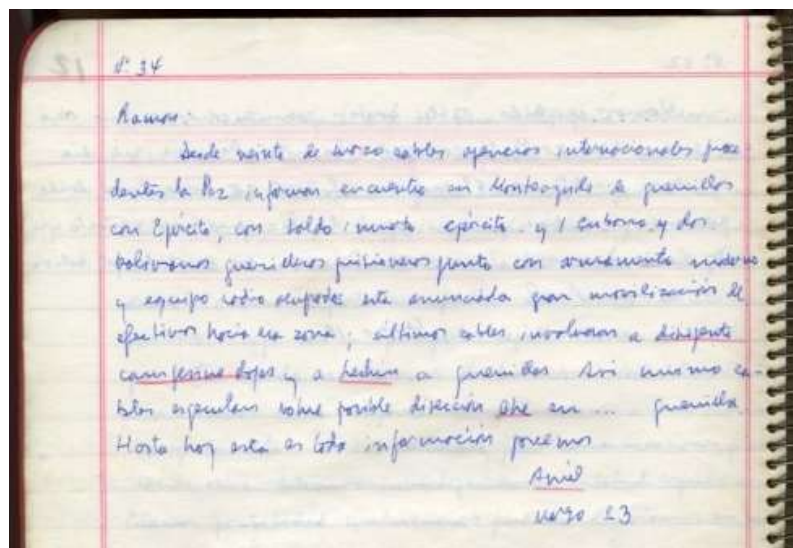 Nº 34
Ramón:
Desde veinte de marzo cables agencias internacionales proce-
dentes la Paz informan encuentro en Monteagudo de guerrillas
con Ejército, con saldo 1 muerto ejército y 1 cubano y dos
bolivianos guerrilleros prisioneros junto con armamento moderno
y equipo radio ocupados esta anunciada gran movilización de
efectivos hacia esa zona; últimos cables involucran a dirigente
campesino Rojas y a Lechín a guerrillas Asi mismo ca-
bles especulan sobre posible dirección Che en ... guerrilla.
Hasta hoy esta es toda información poseemos
Ariel
marzo 23